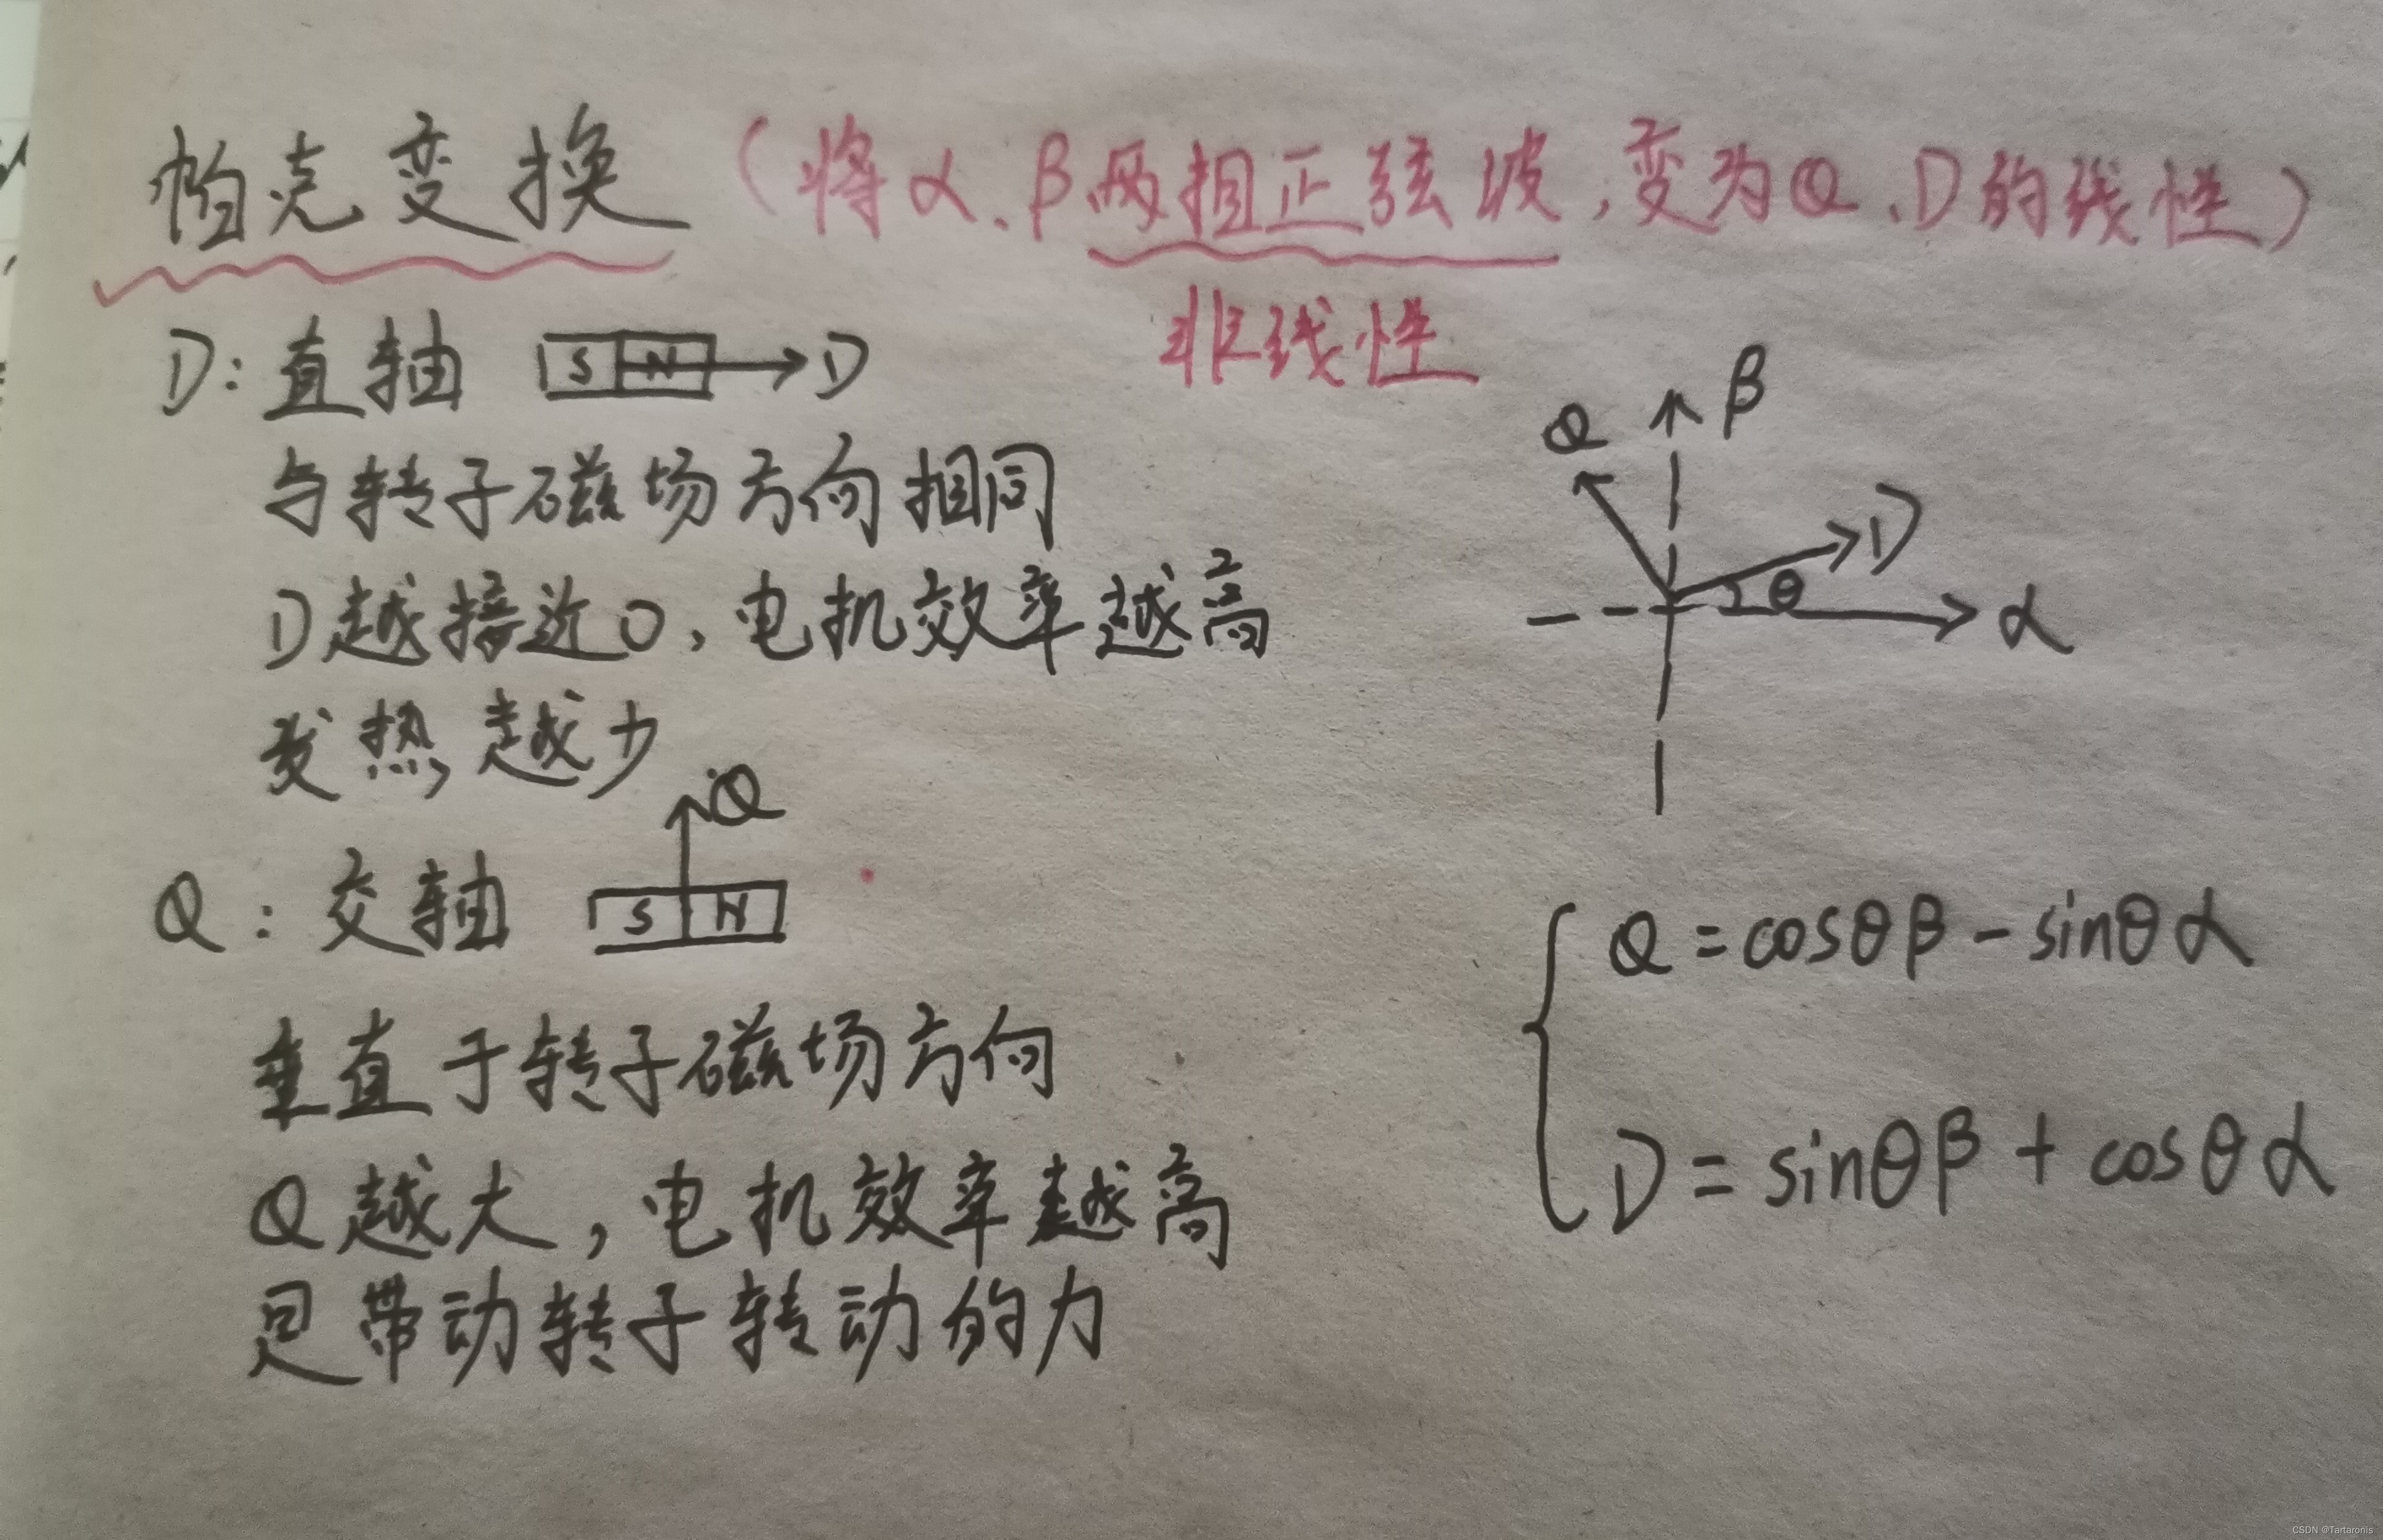 帕克变换（将α、β两相正弦波，变为Q、D的线性）
非线性
D：直轴 S N D
与转子磁场方向相同
D越接近0，电机效率越高
发热越少
Q
Q：交轴 S N
垂直于转子磁场方向
Q越大，电机效率越高
是带动转子转动的力
Q β
D
θ
α
Q = cosθβ - sinθα
D = sinθβ + cosθα
CSDN @Tartaronis